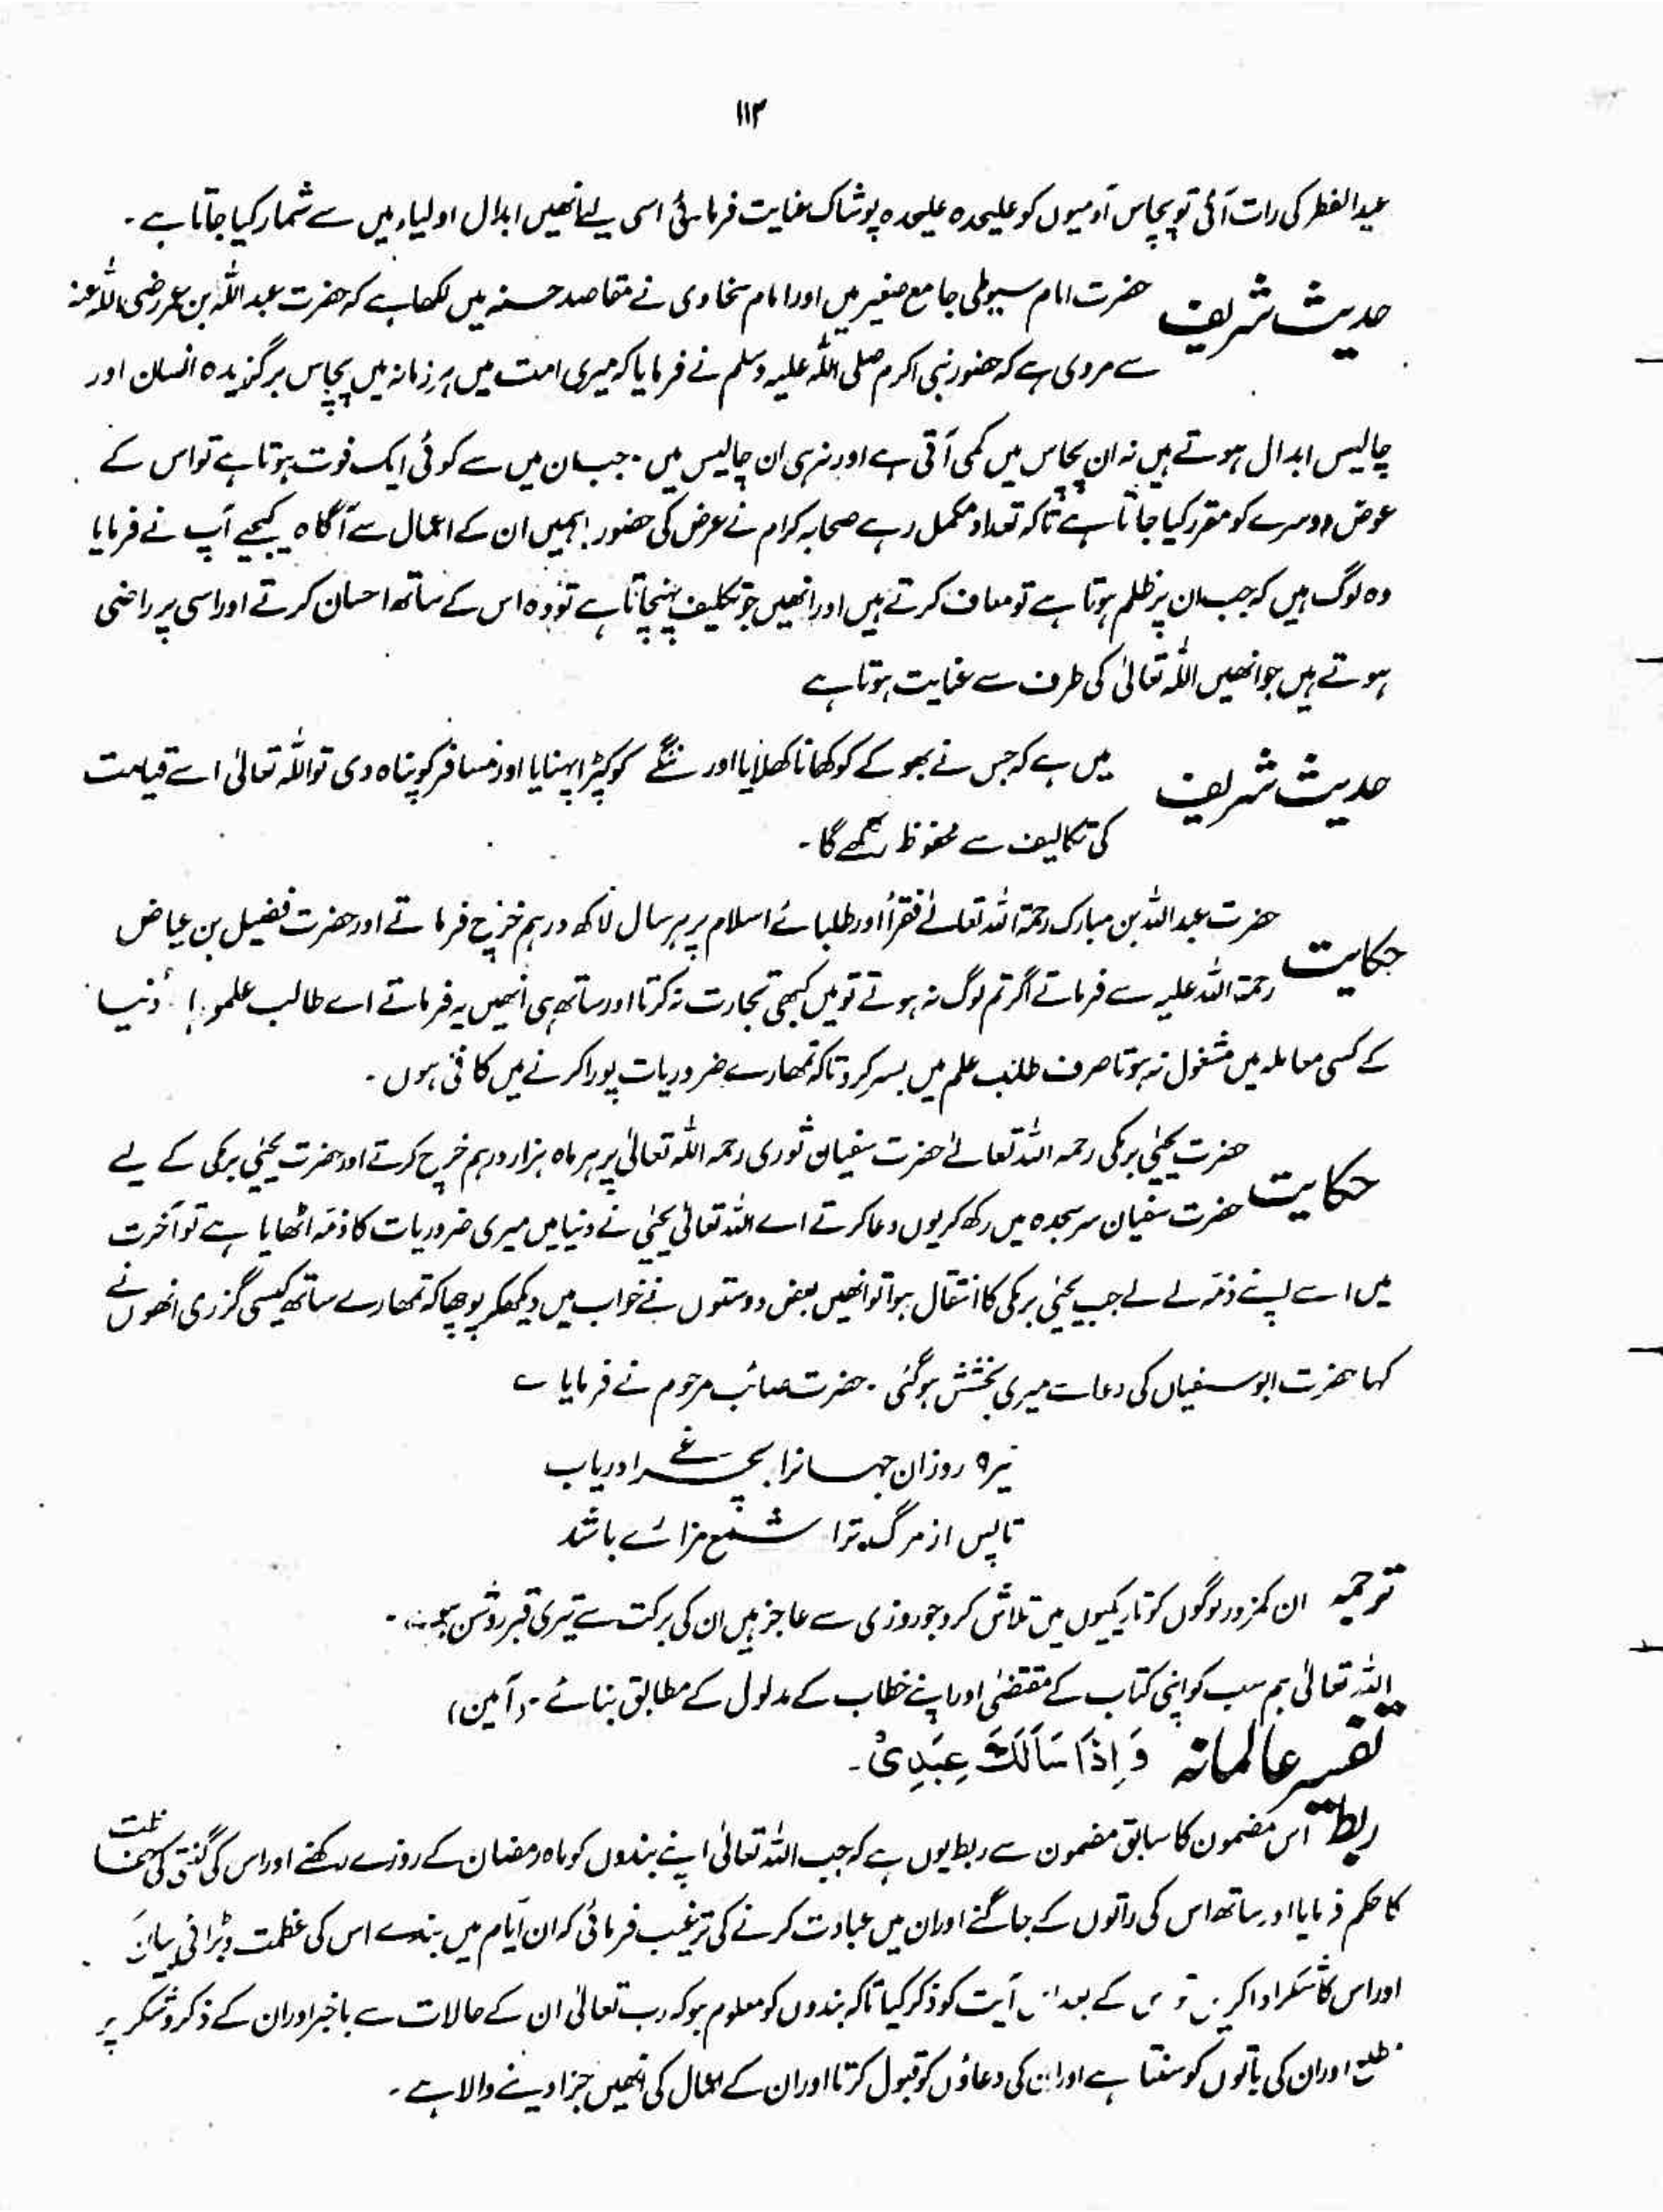 ۱۱۲
عید الفطر کی رات آئی تو پچاس آدمیوں کو علیحدہ علیحدہ پوشاک عنایت فرمائی اسی لیے انھیں ابدال اولیاء میں سے شمار کیا جاتا ہے۔
حدیث شریف حضرت امام سیوطی جامع صغیر میں اور امام سخاوی نے مقاصد حسنہ میں لکھا ہے کہ حضرت عبداللہ بن عمر رضی اللہ عنہ
سے مروی ہے کہ حضور نبی اکرم صلی اللہ علیہ وسلم نے فرمایا کہ میری امت میں ہر زمانہ میں پچاس برگزیدہ انسان اور
چالیس ابدال ہوتے ہیں نہ ان پچاس میں کمی آتی ہے اور نہ ہی ان چالیس میں۔ جب ان میں سے کوئی ایک فوت ہوتا ہے تو اس کے
عوض دوسرے کو مقرر کیا جاتا ہے تاکہ تعداد مکمل رہے صحابہ کرام نے عرض کی حضور! ہمیں ان کے اعمال سے آگاہ کیجیے آپ نے فرمایا
وہ لوگ ہیں کہ جب ان پر ظلم ہوتا ہے تو معاف کرتے ہیں اور انھیں جو تکلیف پہنچاتا ہے تو وہ اس کے ساتھ احسان کرتے اور اسی پر راضی
ہوتے ہیں جو انھیں اللہ تعالیٰ کی طرف سے عنایت ہوتا ہے
حدیث شریف میں ہے کہ جس نے بھوکے کو کھانا کھلایا اور ننگے کو کپڑا پہنایا اور مسافر کو پناہ دی تو اللہ تعالیٰ اسے قیامت
کی تکالیف سے محفوظ رکھے گا۔
حکایت حضرت عبداللہ بن مبارک رحمۃ اللہ تعالےٰ فقرأ اور طلبائے اسلام پر ہر سال لاکھ درہم خرچ فرماتے اور حضرت فضیل بن عیاض
رحمۃ اللہ علیہ سے فرماتے اگر تم لوگ نہ ہوتے تو میں کبھی تجارت نہ کرتا اور ساتھ ہی انھیں یہ فرماتے اے طالب علمو! دنیا
کے کسی معاملہ میں مشغول نہ ہوتا صرف طلب علم میں بسر کرو تاکہ تمھارے ضروریات پورا کرنے میں کافی ہوں۔
حکایت حضرت یحییٰ برمکی رحمہ اللہ تعالےٰ حضرت سفیان ثوری رحمہ اللہ تعالیٰ پر ہر ماہ ہزار درہم خرچ کرتے اور حضرت یحییٰ برمکی کے لیے
حضرت سفیان سر سجدہ میں رکھ کر یوں دعا کرتے اے اللہ تعالیٰ یحییٰ نے دنیا میں میری ضروریات کا ذمہ اٹھایا ہے تو آخرت
میں اسے اپنے ذمہ لے لے جب یحییٰ برمکی کا انتقال ہوا تو انھیں بعض دوستوں نے خواب میں دیکھکر پوچھا کہ تمھارے ساتھ کیسی گزری انھوں نے
کہا حضرت ابو سفیاں کی دعا سے میری بخشش ہو گئی۔ حضرت صائب مرحوم نے فرمایا ؎
تیرہ روزان جہانرا بچراغے دریاب
تا پس از مرگ ترا شمع مزائے باشد
ترجمہ ان کمزور لوگوں کو تاریکیوں میں تلاش کرو جو روزی سے عاجز ہیں ان کی برکت سے تیری قبر روشن ہو۔
اللہ تعالیٰ ہم سب کو اپنی کتاب کے مقتضٰی اور اپنے خطاب کے مدلول کے مطابق بنائے۔ (آمین)
تفسیر عالمانہ وَ اِذَا سَاَلَكَ عِبَادِیْ۔
ربط اس مضمون کا سابق مضمون سے ربط یوں ہے کہ جب اللہ تعالیٰ اپنے بندوں کو ماہ رمضان کے روزے رکھنے اور اس کی گنتی کی
کا حکم فرمایا اور ساتھ اس کی راتوں کے جاگنے اور ان میں عبادت کرنے کی ترغیب فرمائی کہ ان ایام میں بندے اس کی عظمت و بڑائی بیان
اور اس کا شکر ادا کریں کے بعد آیت کو ذکر کیا تاکہ بندوں کو معلوم ہو کہ رب تعالیٰ ان کے حالات سے باخبر اور ان کے ذکر و شکر پر
مطلع اور ان کی باتوں کو سنتا ہے اور ان کی دعاؤں کو قبول کرتا اور ان کے اعمال کی انھیں جزا دینے والا ہے۔